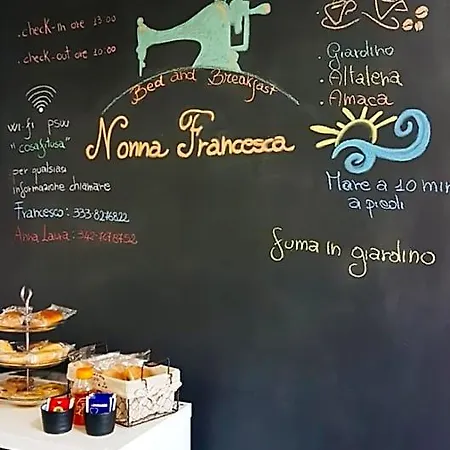 .check-in ore 13:00
.check-out ore 10:00
wi-fi psw
"cosafitusa"
per qualsiasi
informazione chiamare
Francesco: 333-8276822
Anna Laura: 342-7678752
Bed and Breakfast
Nonna Francesca
.Giardino
.Altalena
.Amaca
Mare a 10 min
a piedi
fuma in giardino